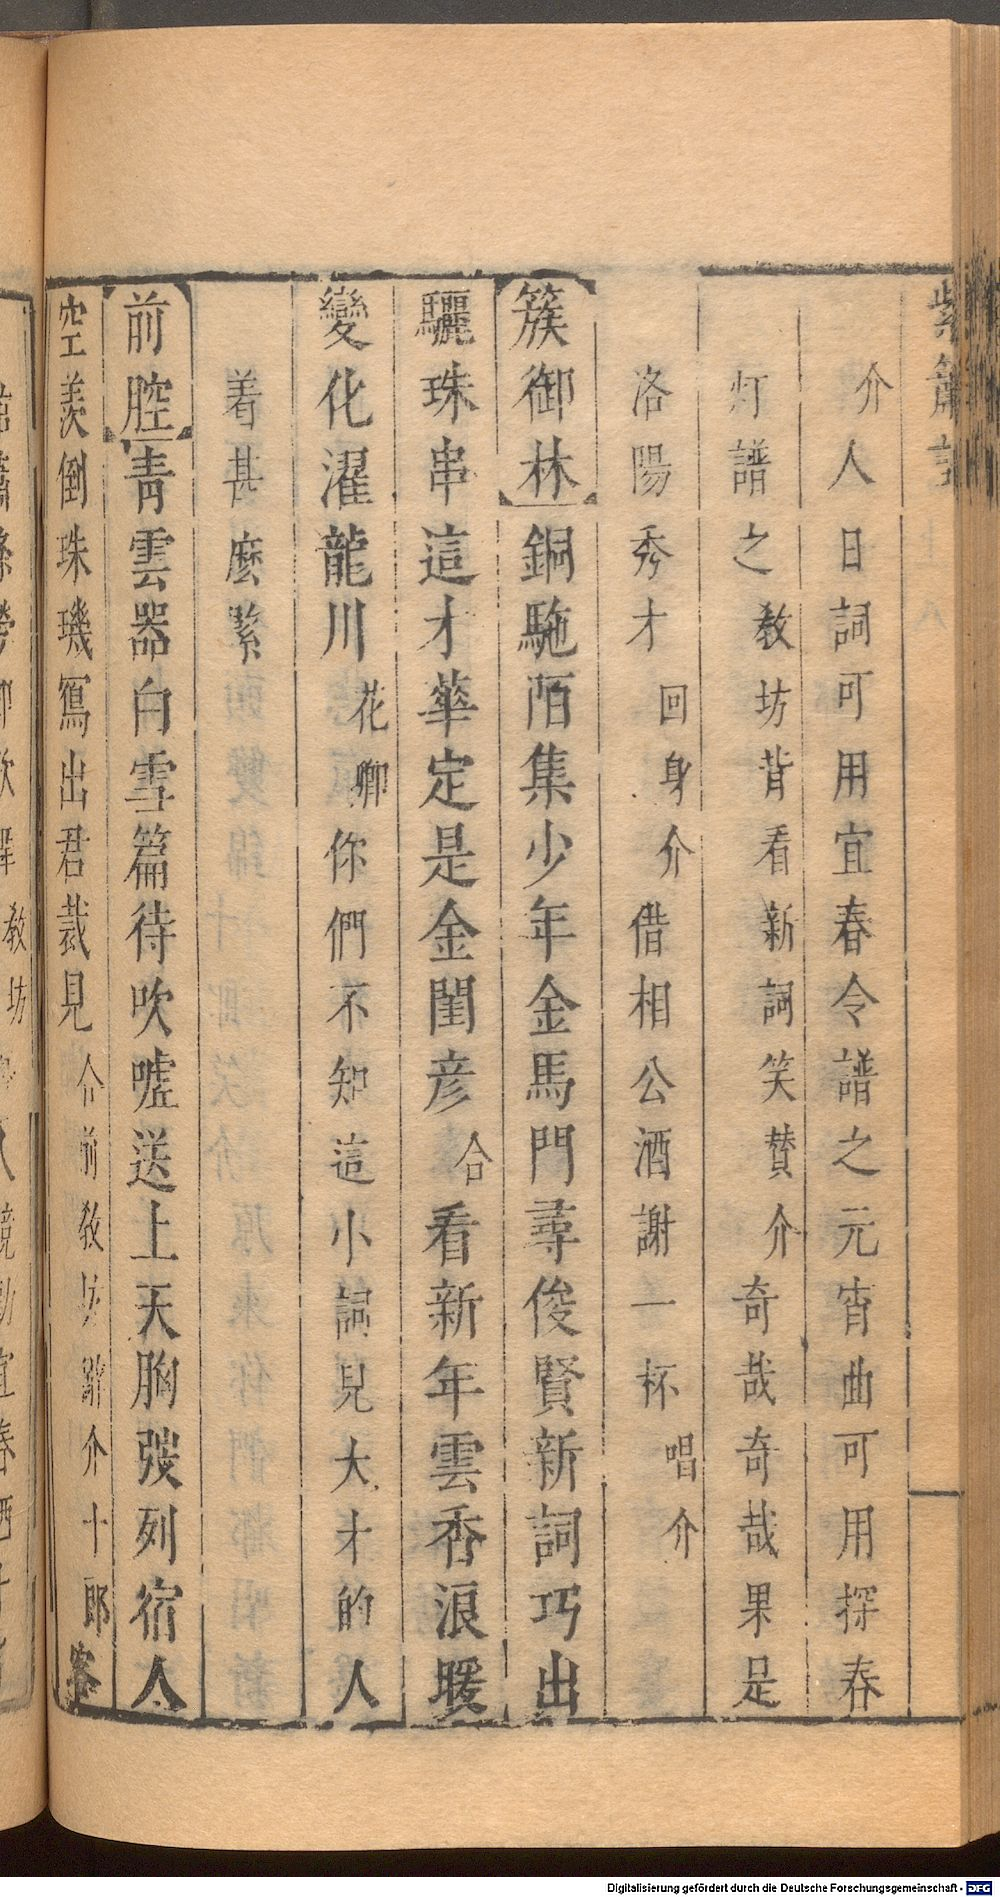 紫簫記
介人日詞可用宜春令譜之元宵曲可用探春
灯譜之教坊背看新詞笑贊介奇哉奇哉果是
洛陽秀才回身介借相公酒謝一杯唱介
簇御林銅駞陌集少年金馬門尋俊賢新詞巧出
驪珠串這才華定是金閨彦合看新年雲香浪暖
變化濯龍川花卿你們不知這小詞兒大才的人
着甚麽緊
前腔青雲器白雪篇待吹噓送上天胸發列宿人
空羨倒珠璣寫出君裁見合前教坊辭介十郎客
Digitalisierung gefördert durch die Deutsche Forschungsgemeinschaft - DFG